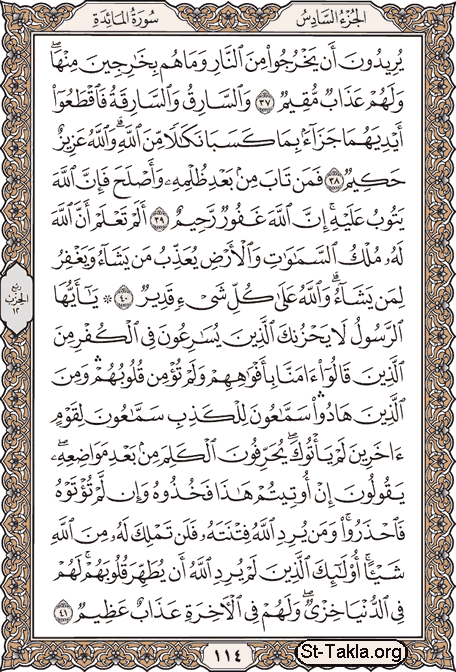 الجزء السادس سورة المائدة
يُرِيدُونَ أَن يَخْرُجُوا۟ مِنَ ٱلنَّارِ وَمَا هُم بِخَٰرِجِينَ مِنْهَا ۖ
وَلَهُمْ عَذَابٌ مُّقِيمٌ ٣٧ وَٱلسَّارِقُ وَٱلسَّارِقَةُ فَٱقْطَعُوٓا۟
أَيْدِيَهُمَا جَزَآءًۢ بِمَا كَسَبَا نَكَٰلًا مِّنَ ٱللَّهِ ۗ وَٱللَّهُ عَزِيزٌ
حَكِيمٌ ٣٨ فَمَن تَابَ مِنۢ بَعْدِ ظُلْمِهِۦ وَأَصْلَحَ فَإِنَّ ٱللَّهَ
يَتُوبُ عَلَيْهِ ۗ إِنَّ ٱللَّهَ غَفُورٌ رَّحِيمٌ ٣٩ أَلَمْ تَعْلَمْ أَنَّ ٱللَّهَ
لَهُۥ مُلْكُ ٱلسَّمَٰوَٰتِ وَٱلْأَرْضِ يُعَذِّبُ مَن يَشَآءُ وَيَغْفِرُ
لِمَن يَشَآءُ ۗ وَٱللَّهُ عَلَىٰ كُلِّ شَىْءٍ قَدِيرٌ ٤٠ ۞ يَٰٓأَيُّهَا
ٱلرَّسُولُ لَا يَحْزُنكَ ٱلَّذِينَ يُسَٰرِعُونَ فِى ٱلْكُفْرِ مِنَ
ٱلَّذِينَ قَالُوٓا۟ ءَامَنَّا بِأَفْوَٰهِهِمْ وَلَمْ تُؤْمِن قُلُوبُهُمْ ۛ وَمِنَ
ٱلَّذِينَ هَادُوا۟ ۛ سَمَّٰعُونَ لِلْكَذِبِ سَمَّٰعُونَ لِقَوْمٍ
ءَاخَرِينَ لَمْ يَأْتُوكَ ۖ يُحَرِّفُونَ ٱلْكَلِمَ مِنۢ بَعْدِ مَوَاضِعِهِۦ ۖ
يَقُولُونَ إِنْ أُوتِيتُمْ هَٰذَا فَخُذُوهُ وَإِن لَّمْ تُؤْتَوْهُ
فَٱحْذَرُوا۟ ۚ وَمَن يُرِدِ ٱللَّهُ فِتْنَتَهُۥ فَلَن تَمْلِكَ لَهُۥ مِنَ ٱللَّهِ
شَيْـًٔا ۚ أُو۟لَٰٓئِكَ ٱلَّذِينَ لَمْ يُرِدِ ٱللَّهُ أَن يُطَهِّرَ قُلُوبَهُمْ ۚ لَهُمْ
فِى ٱلدُّنْيَا خِزْىٌ ۖ وَلَهُمْ فِى ٱلْءَاخِرَةِ عَذَابٌ عَظِيمٌ ٤١
ربع
الحزب
١٢
١١٤
St-Takla.org